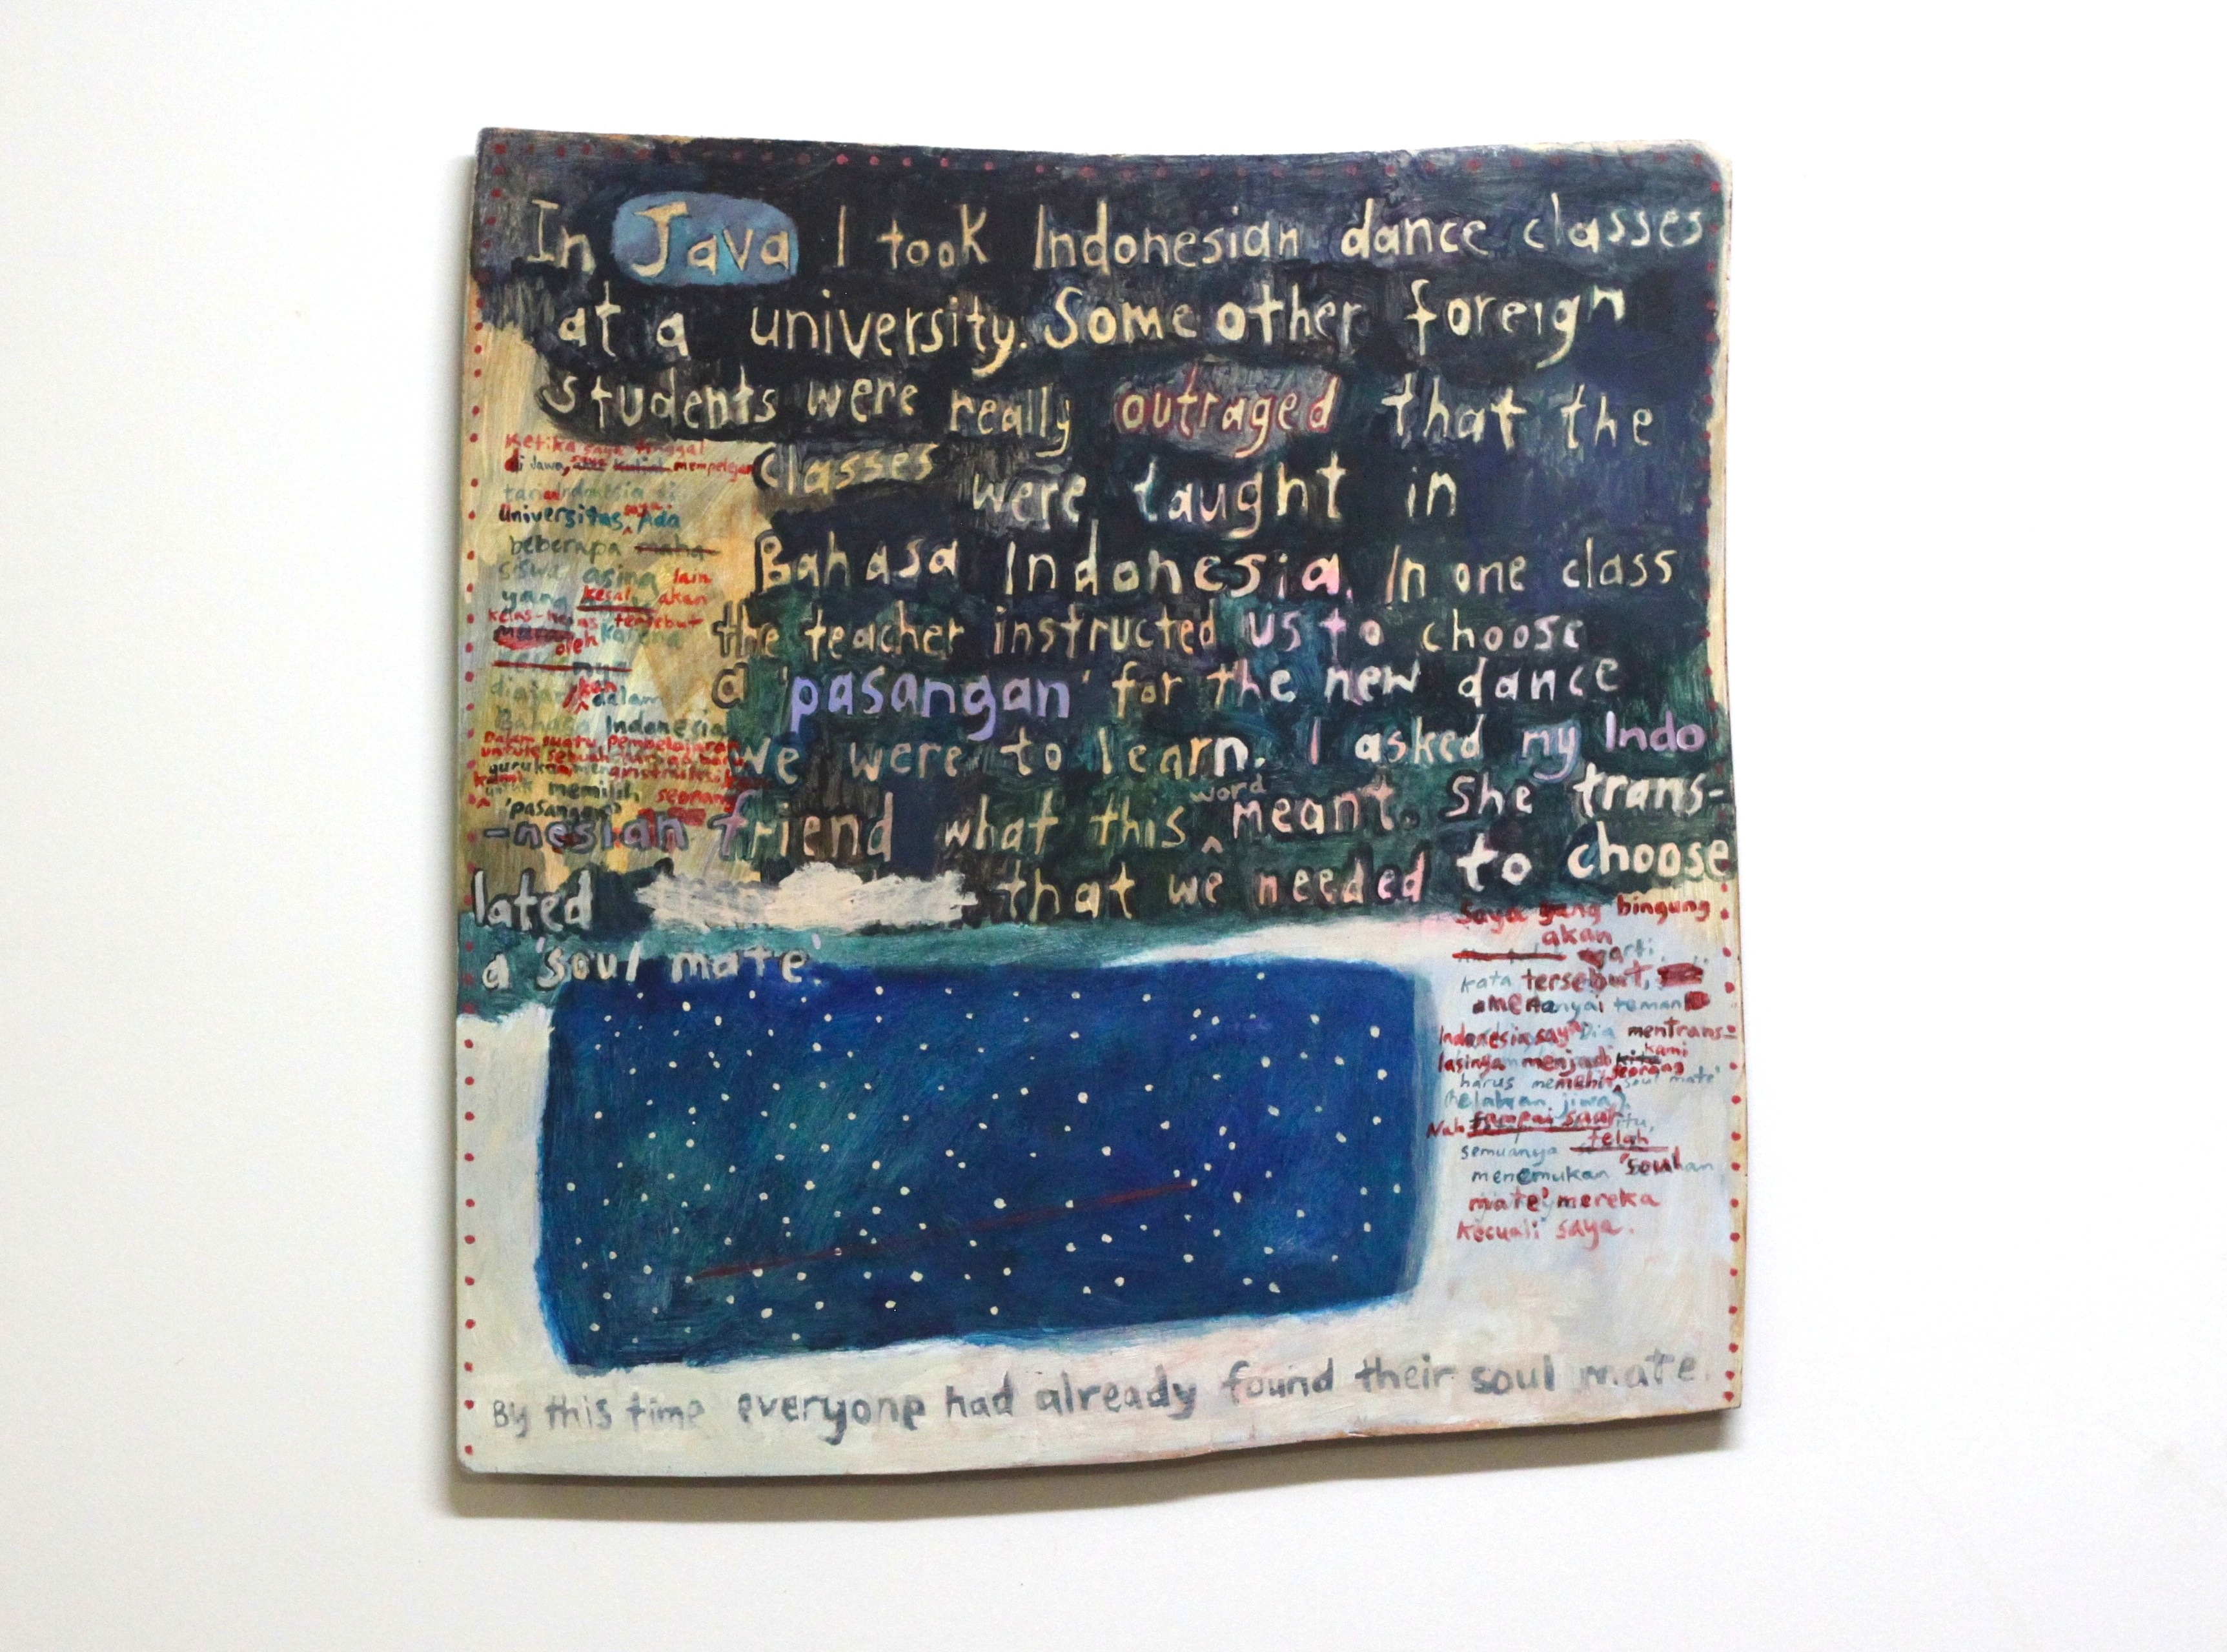 In Java I took Indonesian dance classes
at a university. Some other foreign
students were really outraged that the
classes were taught in
Bahasa Indonesia. In one class
the teacher instructed us to choose
a 'pasangan' for the new dance
we were to learn. I asked my Indo
-nesian friend what this word meant. She trans-
lated that we needed to choose
a 'soul mate'.
Ketika saya tinggal
di Jawa, saya mempelajari
universitas. Ada
beberapa
siswa asing lain
yang kesal akan
kelas-kelas tersebut
oleh karena
diajarkan dalam
Bahasa Indonesia
Dalam suatu pembelajaran
untuk sebuah
memilih seorang
'pasangan'
Saya yang bingung
akan arti
kata tersebut,
menanyai teman
Indonesia saya. Dia mentrans-
lasinya menjadi kami
harus memilih seorang 'soul mate'
(belahan jiwa).
Nah sampai saat itu,
semuanya telah
menemukan 'soul
mate' mereka
kecuali saya.
By this time everyone had already found their soul mate.